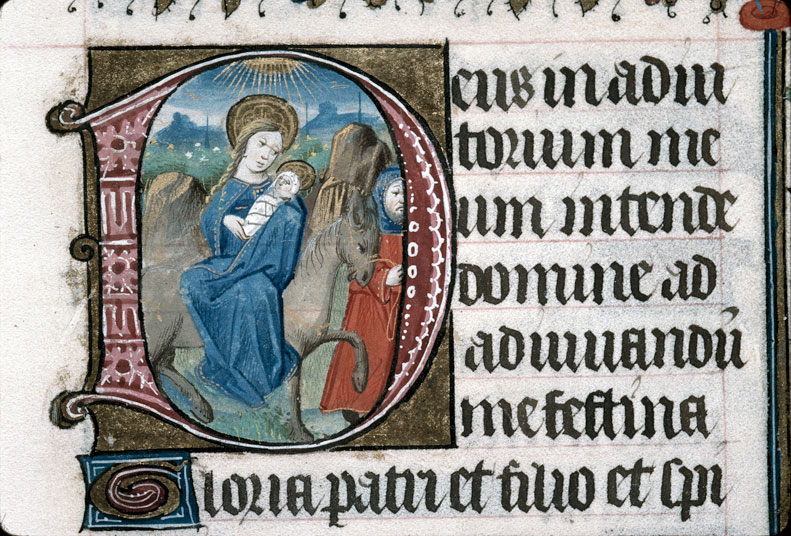 Deus in adiu
torium me
um intende
domine ad
adiuuandū
me festina
Gloria patri et filio et spi